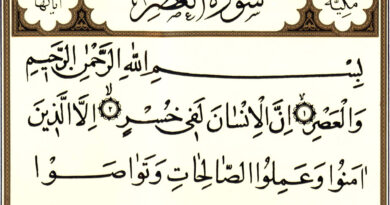 مكية سورة العصر آياتها
بِسْمِ اللَّهِ الرَّحْمَٰنِ الرَّحِيمِ
وَالْعَصْرِ ﴿١﴾ إِنَّ الْإِنْسَانَ لَفِي خُسْرٍ ﴿٢﴾ إِلَّا الَّذِينَ
اٰمَنُوا وَعَمِلُوا الصَّالِحَاتِ وَتَوَاصَوْا